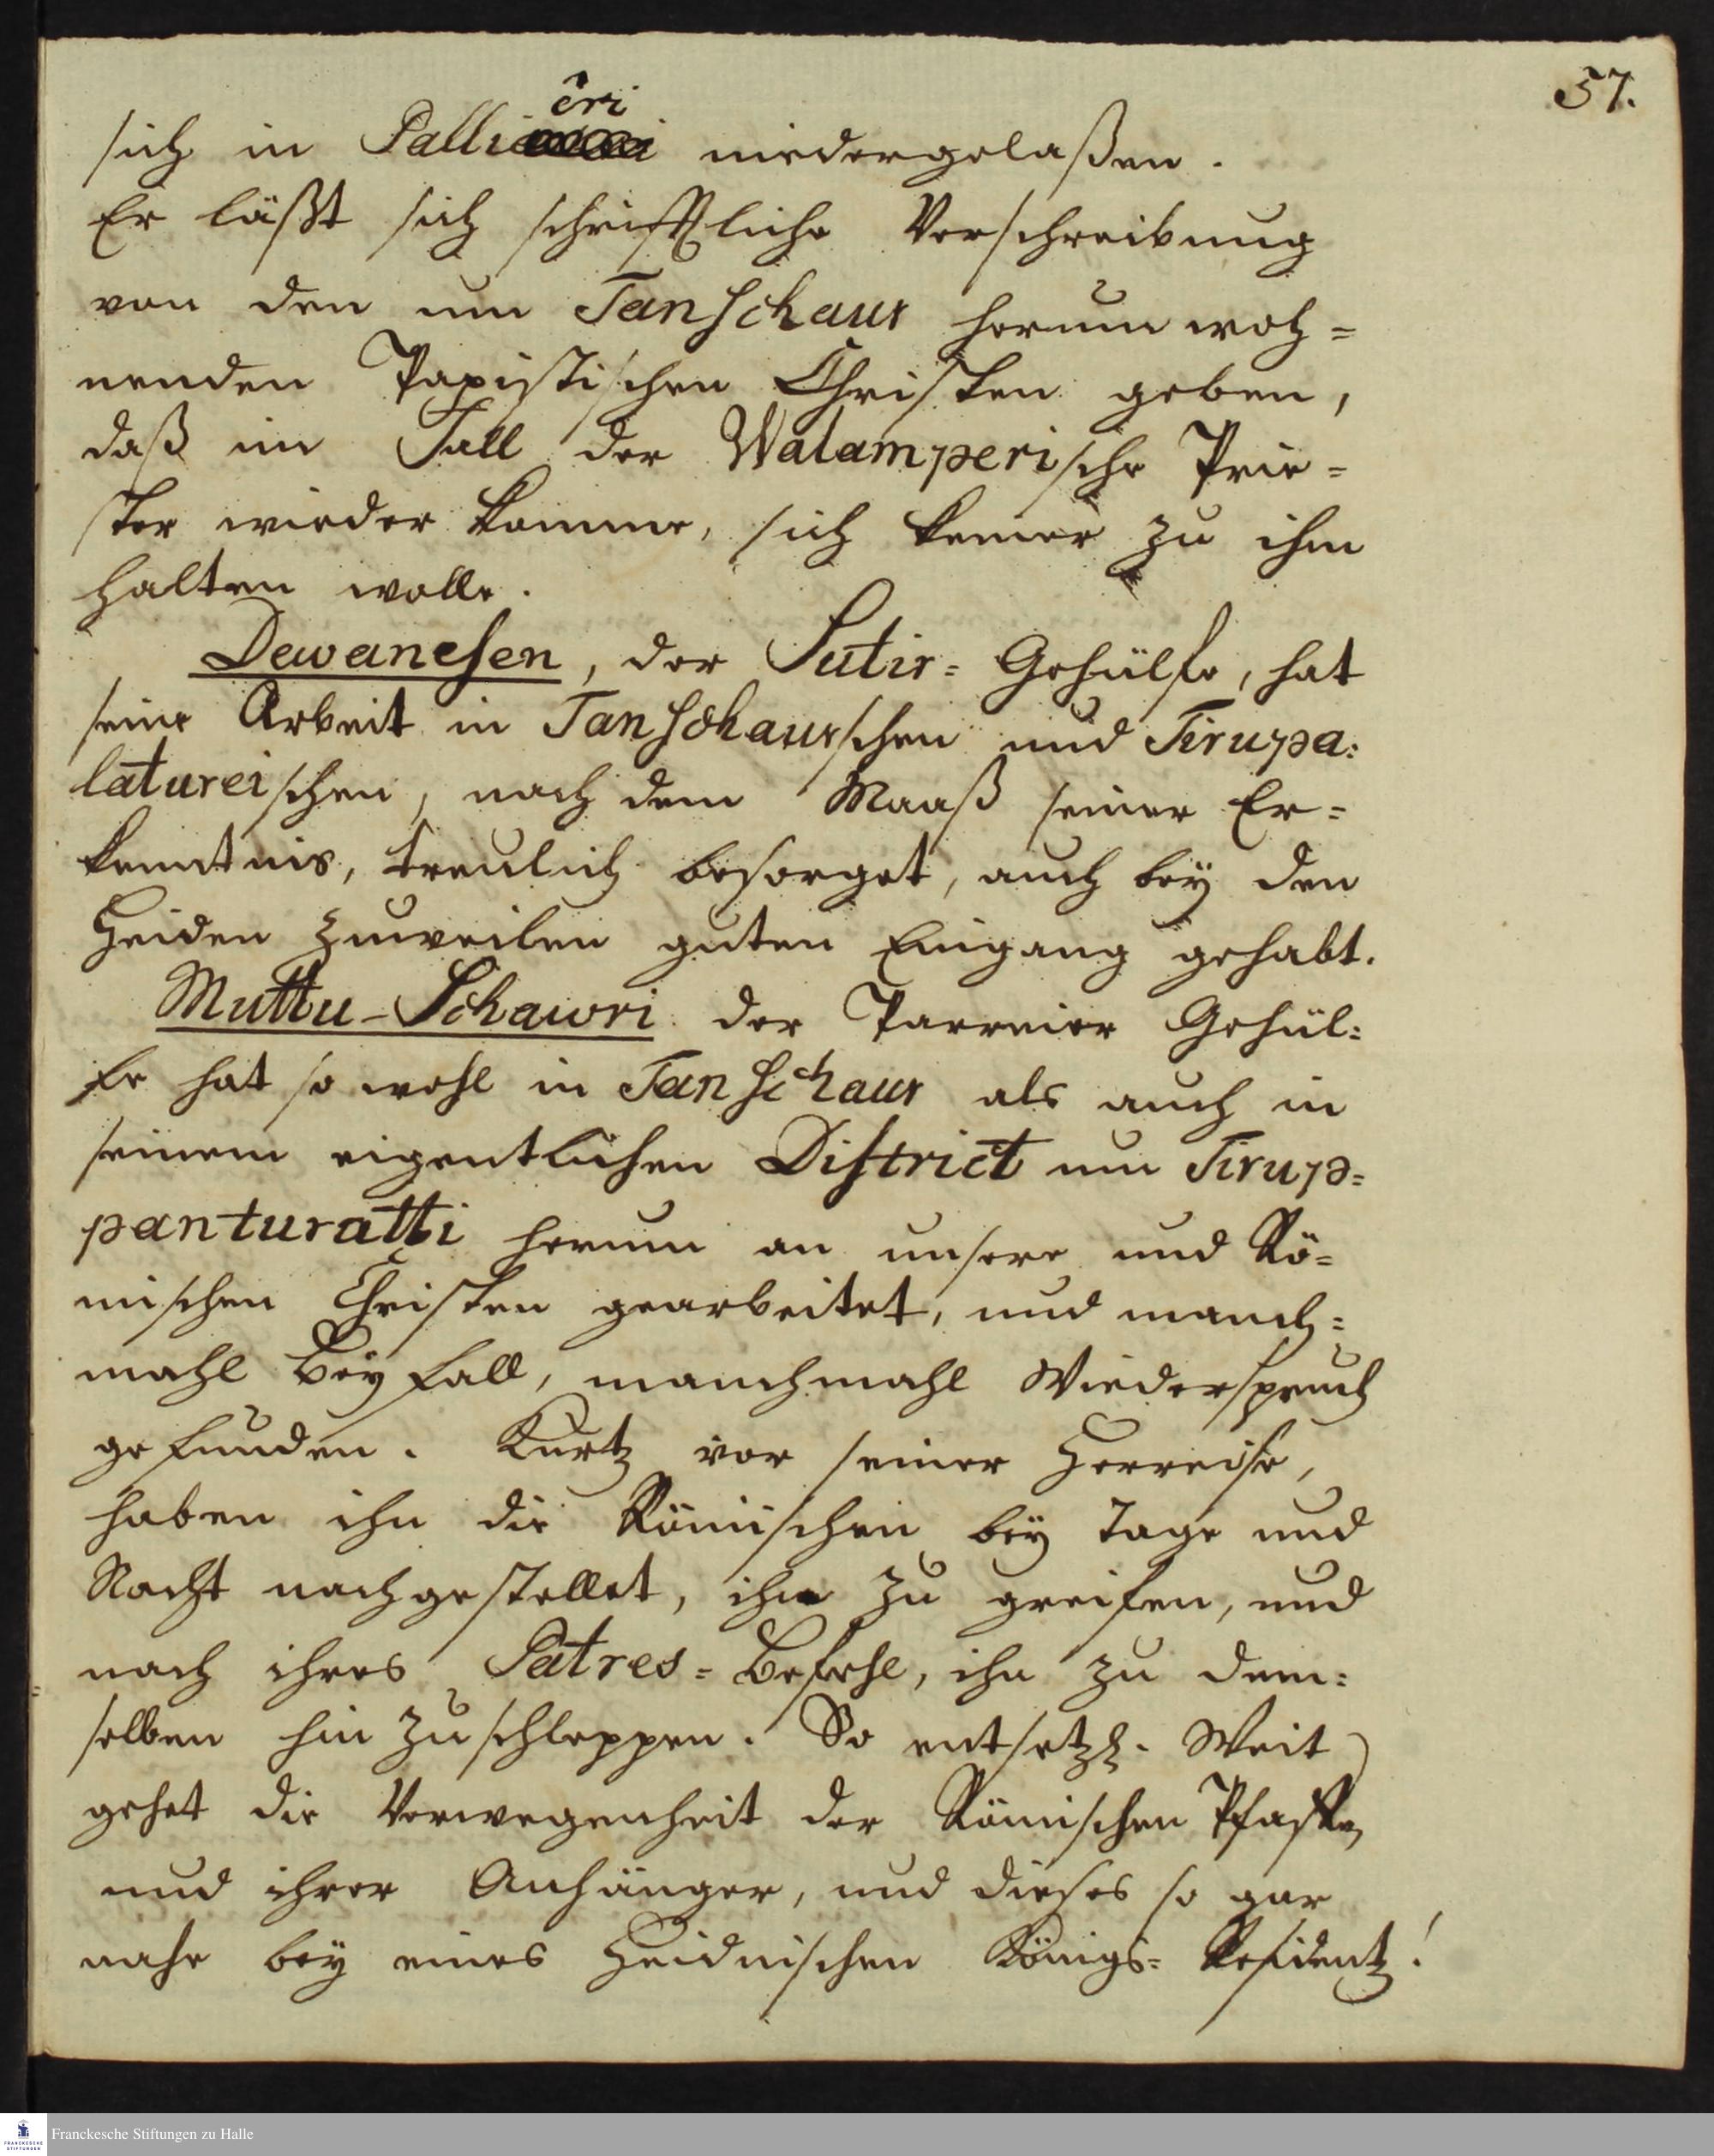 57.
êri
sich in Palli niedergelaßen.
Er läßt sich schrifftliche Verschreibung
von den um Tanschaur herum woh=
nenden Papistischen Christen geben,
daß im Fall der Walamperische Prie=
ster wieder komme, sich keiner zu ihm
halten wolle.
Dewanesen, der Sutir= Gehülfe, hat
seine Arbeit in Tanschaurschen und Tirupa:
latureischen, nach dem Maaß seiner Er=
kenntnis, treulich besorget, auch bey den
Heiden zuweilen guten Eingang gehabt.
Muttu-Schawri der Parreier Gehül:
fe hat so wohl in Tanschaur als auch in
seinem eigentlichen District um Tirup=
panturatti herum an unsere und Rö=
mischen Christen gearbeitet, und manch=
mahl Beyfall, manchmahl Wiederspruch
gefunden. Kurtz vor seiner Herreise,
haben ihn die Römischen bey Tage und
Nacht nachgestellet, ihn zu greifen, und
nach ihres Patres= Befehl, ihn zu dem:
selben hin zu schleppen. So entsetzl. Weit
gehet die Verwegenheit der Römischen Pfaffen
und ihrer Anhänger, und dieses so gar
nahe bey eines Heidnischen Königs= Residentz!
Franckesche Stiftungen zu Halle